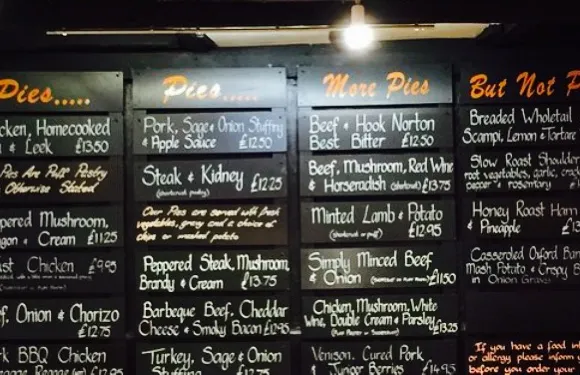 Pies.....
cken, Homecooked
& Leek £13.50
Pies Are Puff Pastry
Otherwise Stated
pered Mushroom,
agon & Cream £11.25
ust Chicken £9.95
f, Onion & Chorizo
£12.75
k BBQ Chicken
£12.95
Pies.....
Pork, Sage & Onion Stuffing
& Apple Sauce £12.50
Steak & Kidney £12.25
(shortcrust pastry)
Our Pies are served with fresh
vegetables, gravy and a choice of
chips or mashed potato
Peppered Steak, Mushroom,
Brandy & Cream £13.75
Barbeque Beef, Cheddar
Cheese & Smoky Bacon £12.95
Turkey, Sage & Onion
Stuffing £12.75
More Pies
Beef & Hook Norton
Best Bitter £12.50
Beef, Mushroom, Red Wine
& Horseradish (shortcrust) £13.75
Minted Lamb & Potato
(shortcrust or puff) £12.95
Simply Minced Beef
& Onion (shortcrust or puff pastry) £11.50
Chicken, Mushroom, White
Wine, Double Cream & Parsley £13.25
(puff pastry or shortcrust)
Venison, Cured Pork
& Juniper Berries £14.95
But Not P
Breaded Wholetail
Scampi, Lemon & Tartare
Slow Roast Shoulder
root vegetables, garlic, crack
pepper & rosemary £
Honey Roast Ham
& Pineapple £13
Casseroled Oxford Bur
Mash Potato & Crispy
in Onion Gravy
If you have a food int
or allergy please inform
before you order your